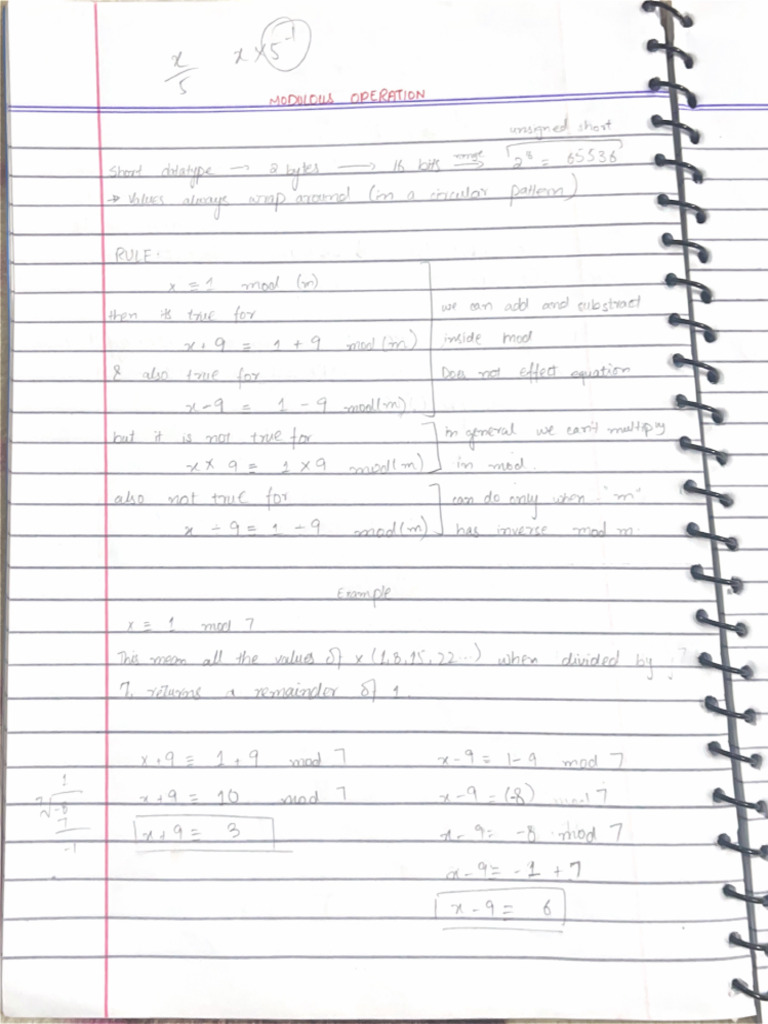 x/5   x × 5⁻¹
MODULOUS OPERATION
unsigned short
short datatype → 2 bytes → 16 bits range ⟹ 2⁸ = 65536
→ values always wrap around (in a circular pattern)
RULE:
x ≡ 1 mod (m)
then its true for   we can add and substract
x + 9 = 1 + 9 mod (m)   inside mod
& also true for   Does not effect equation
x - 9 = 1 - 9 mod(m)
but it is not true for   In general we can't multiply
x × 9 = 1 × 9 mod(m)   in mod.
also not true for   can do only when "m"
x ÷ 9 = 1 ÷ 9 mod(m)   has inverse mod m.
Example
x ≡ 1 mod 7
This mean all the values of x (1, 8, 15, 22...) when divided by
7, returns a remainder of 1.
x + 9 ≡ 1 + 9 mod 7   x - 9 = 1 - 9 mod 7
1
x + 9 = 10 mod 7   x - 9 = (-8) mod 7
7 -8
7
x + 9 = 3   x - 9 = -8 mod 7
-1
x - 9 = -1 + 7
x - 9 = 6